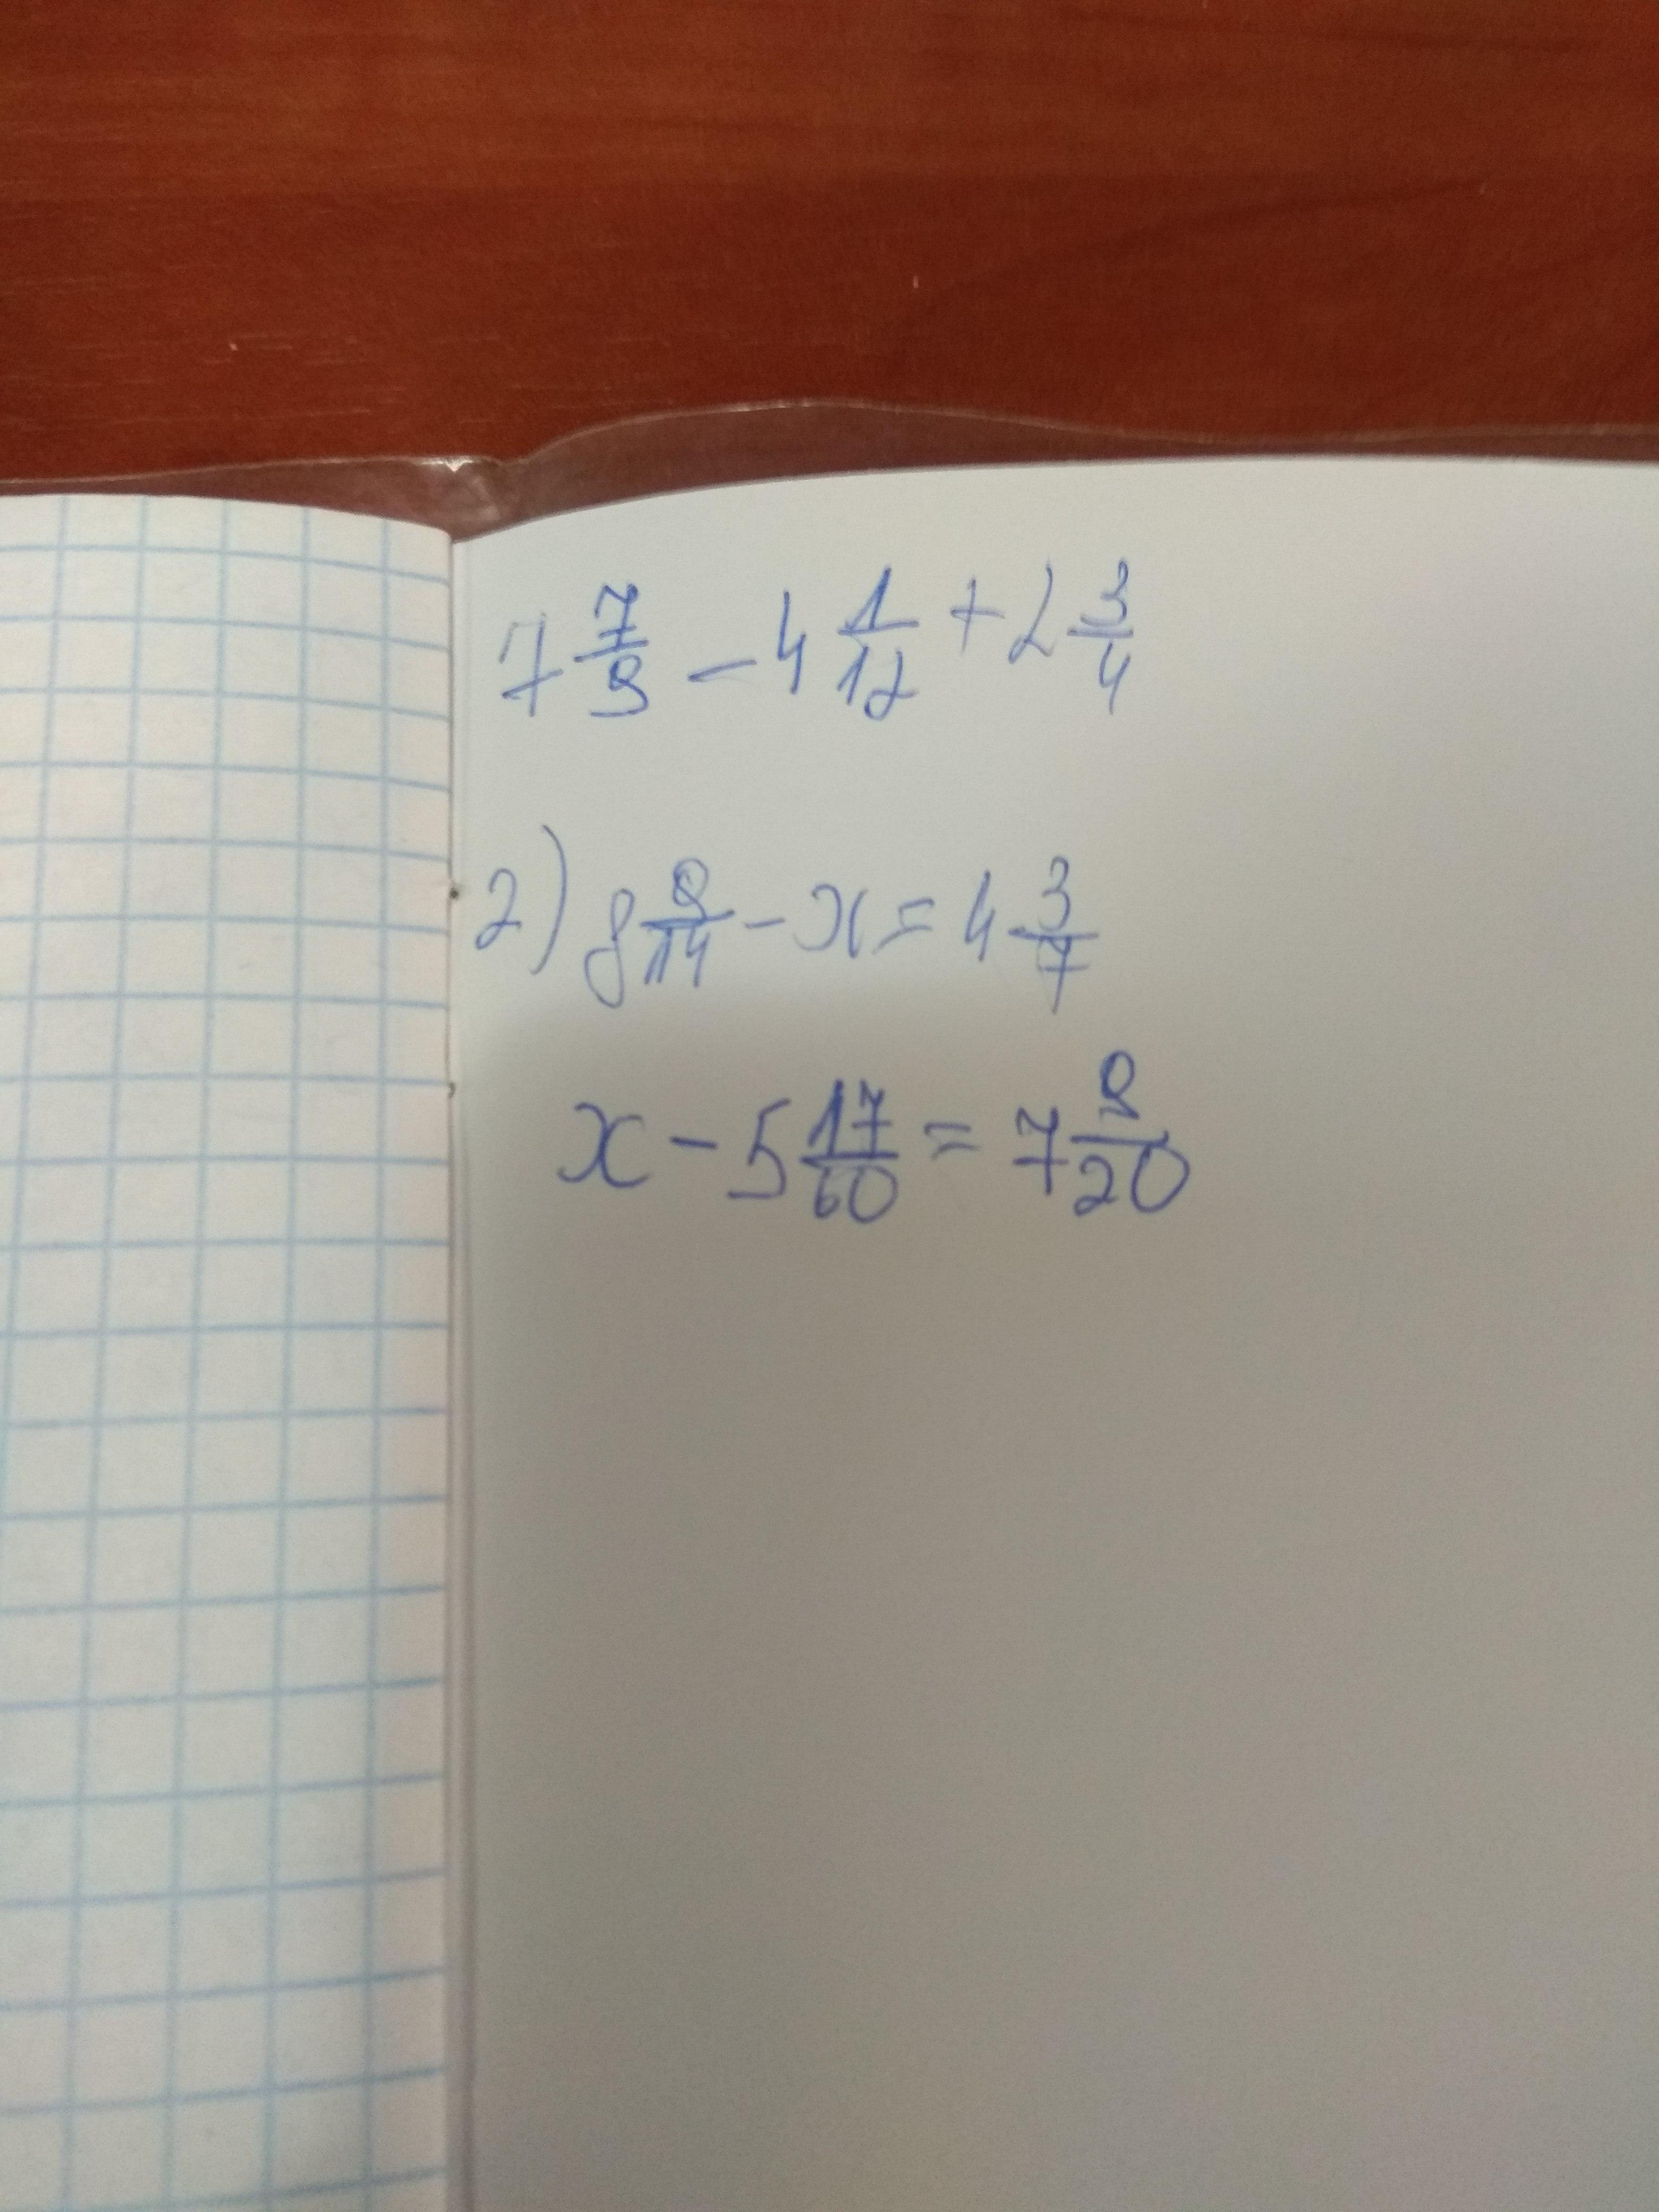 7 7/9 - 4 1/12 + 2 3/4
2) 8 9/14 - x = 4 3/7
x - 5 17/60 = 7 9/20